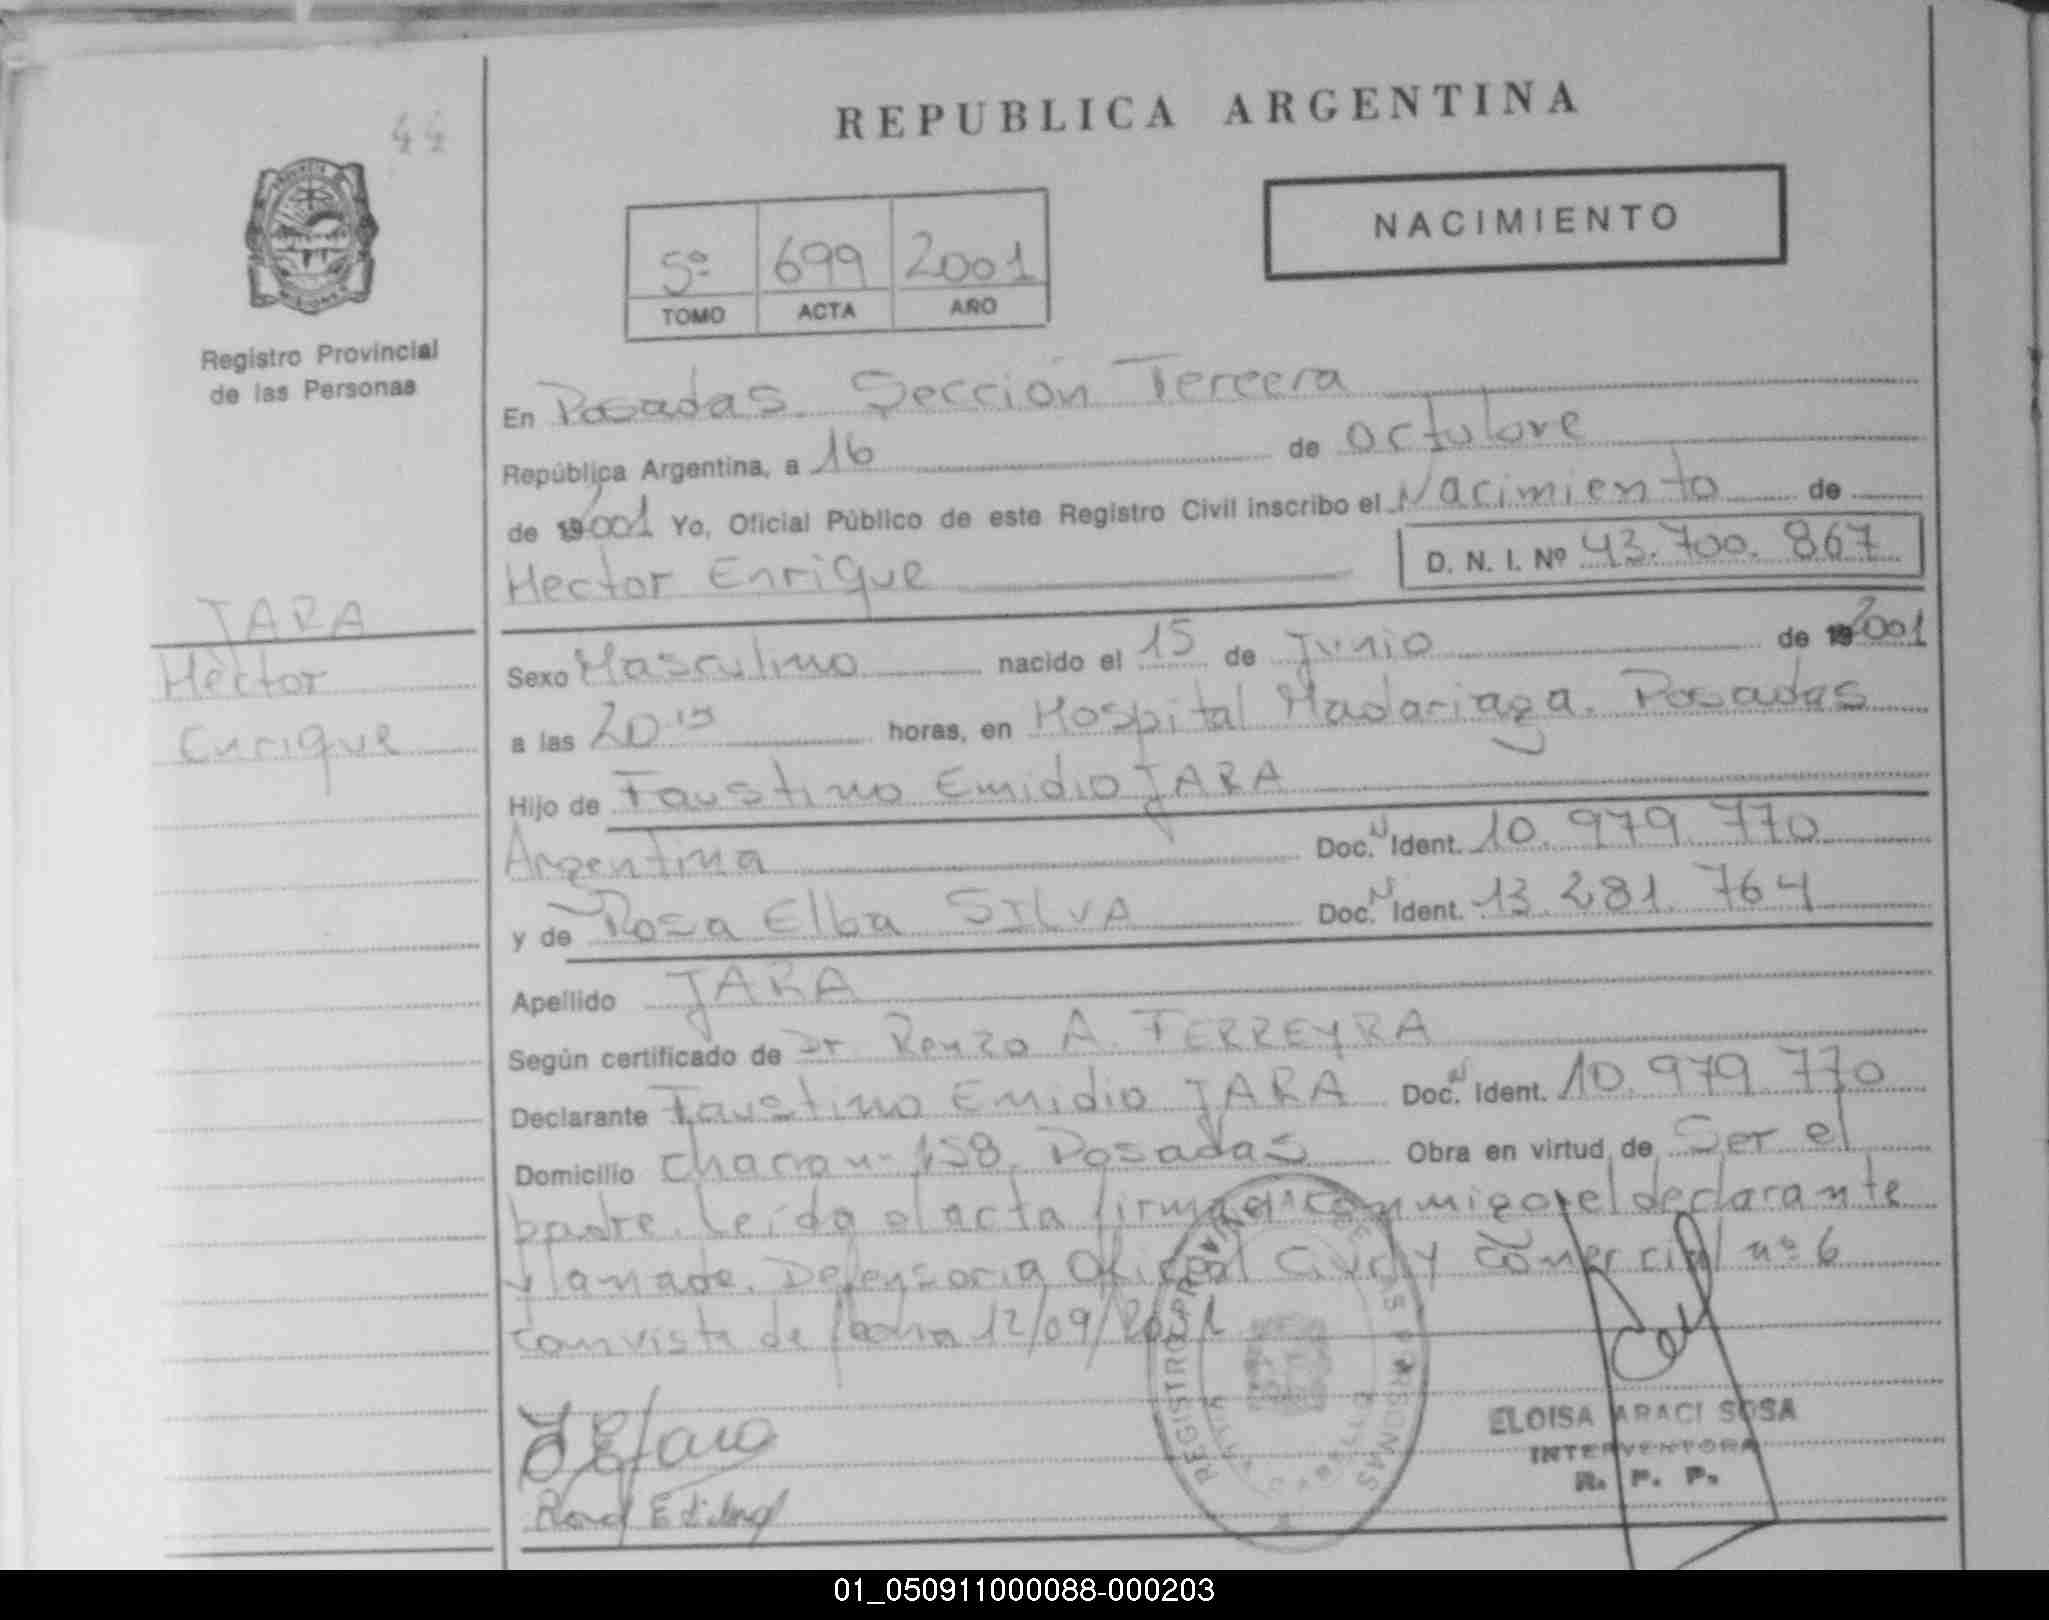 44
REPUBLICA ARGENTINA
NACIMIENTO
5º 699 2001
TOMO ACTA AÑO
Registro Provincial
de las Personas
En Posadas. Sección Tercera
República Argentina, a 16 de octubre
de 192001 Yo, Oficial Público de este Registro Civil inscribo el Nacimiento de
Hector Enrique D. N. I. Nº 43.700.867
JARA
Hector
Enrique
Sexo Masculino nacido el 15 de Junio de 192001
a las 20 15 horas, en Hospital Madariaga. Posadas
Hijo de Faustino Emidio JARA
Argentina Doc. N Ident. 10.979.770
y de Rosa Elba SILVA Doc. N Ident. 13.281.764
Apellido JARA
Según certificado de Dr. Renzo A. FERREYRA
Declarante Faustino Emidio JARA Doc. N Ident. 10.979.770
Domicilio chacra nº 158. Posadas Obra en virtud de Ser el
padre. Leída el acta firman conmigo el declarante
y la madre. Defensoria Oficial Civil y Comercial nº 6
con vista de fecha 12/09/2001
REGISTRO PROVINCIAL DE LAS PERSONAS
ELOISA ARACI SOSA
INTERVENTORA
R. P. P.
01_050911000088-000203